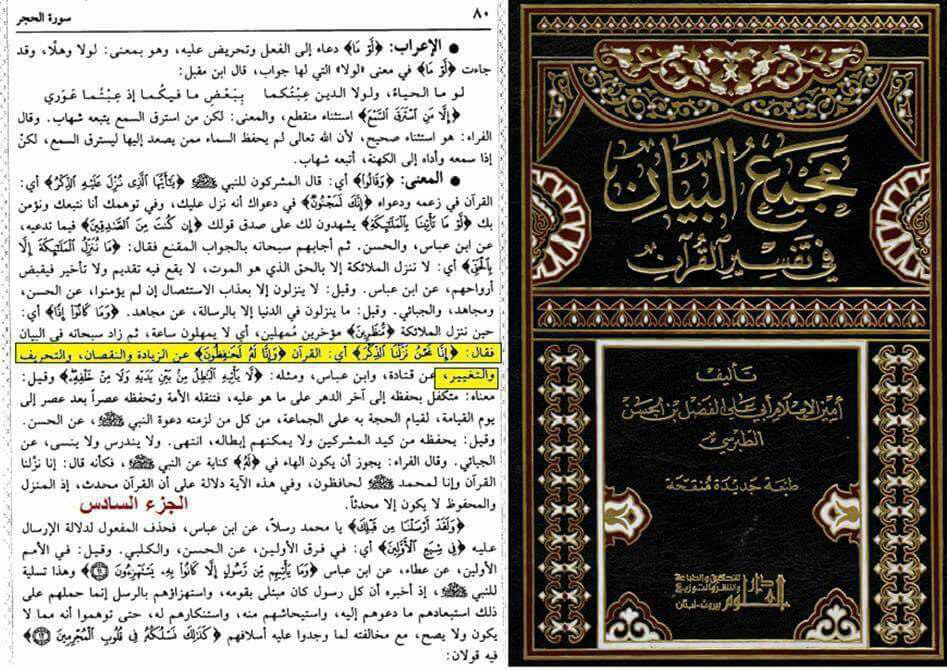 ٨٠
سورة الحجر
● الإعراب: ﴿لَّوْ مَا﴾ دعاء إلى الفعل وتحريض عليه، وهو بمعنى: لولا وهلّا، وقد
جاءت ﴿لَّوْ مَا﴾ في معنى «لولا» التي لها جواب، قال ابن مقبل:
لو ما الحياءُ، ولولا الدين عِبْتُكما بِبَعْضِ ما فيكُما إذ عِبْتُما عَوَري
﴿إِلَّا مَنِ اسْتَرَقَ السَّمْعَ﴾ استثناء منقطع، والمعنى: لكن من استرق السمع يتبعه شهاب. وقال
الفراء: هو استثناء صحيح، لأن الله تعالى لم يحفظ السماء ممن يصعد إليها ليسترق السمع، لكنْ
إذا سمعه وأداه إلى الكهنة، أتبعه شهاب.
● المعنى: ﴿وَقَالُوا﴾ أي: قال المشركون للنبي ﷺ ﴿يَا أَيُّهَا الَّذِي نُزِّلَ عَلَيْهِ الذِّكْرُ﴾ أي:
القرآن في زعمه ودعواه ﴿إِنَّكَ لَمَجْنُونٌ﴾ في دعواك أنه نزل عليك، وفي توهمك أنا نتبعك ونؤمن
بك ﴿لَّوْ مَا تَأْتِينَا بِالْمَلَائِكَةِ﴾ يشهدون لك على صدق قولك ﴿إِن كُنتَ مِنَ الصَّادِقِينَ﴾ فيما تدعيه،
عن ابن عباس، والحسن. ثم أجابهم سبحانه بالجواب المقنع فقال: ﴿مَا نُنَزِّلُ الْمَلَائِكَةَ إِلَّا
بِالْحَقِّ﴾ أي: لا ننزل الملائكة إلا بالحق الذي هو الموت، لا يقع فيه تقديم ولا تأخير فيقبض
أرواحهم، عن ابن عباس. وقيل: لا ينزلون إلا بعذاب الاستئصال إن لم يؤمنوا، عن الحسن،
ومجاهد، والجبائي. وقيل: ما ينزلون في الدنيا إلا بالرسالة، عن مجاهد. ﴿وَمَا كَانُوا إِذًا﴾ أي:
حين ننزل الملائكة ﴿مُّنظَرِينَ﴾ مؤخرين مُمهلين، أي لا يمهلون ساعة، ثم زاد سبحانه في البيان
فقال: ﴿إِنَّا نَحْنُ نَزَّلْنَا الذِّكْرَ﴾ أي: القرآن ﴿وَإِنَّا لَهُ لَحَافِظُونَ﴾ عن الزيادة والنقصان، والتحريف
والتغيير، عن قتادة، وابن عباس، ومثله: ﴿لَا يَأْتِيهِ الْبَاطِلُ مِن بَيْنِ يَدَيْهِ وَلَا مِنْ خَلْفِهِ﴾ وقيل:
معناه: متكفل بحفظه إلى آخر الدهر على ما هو عليه، فتنقله الأمة وتحفظه عصراً بعد عصر إلى
يوم القيامة، لقيام الحجة به على الجماعة، من كل من لزمته دعوة النبي ﷺ، عن الحسن.
وقيل: يحفظه من كيد المشركين ولا يمكنهم إبطاله، انتهى. ولا يندرس ولا ينسى، عن
الجبائي. وقال الفراء: يجوز أن يكون الهاء في ﴿لَهُ﴾ كناية عن النبي ﷺ، فكأنه قال: إنا نزّلنا
القرآن وإنا لمحمد ﷺ لحافظون، وفي هذه الآية دلالة على أن القرآن محدث، إذ المنزل
والمحفوظ لا يكون إلا محدثاً.
الجزء السادس
﴿وَلَقَدْ أَرْسَلْنَا مِن قَبْلِكَ﴾ يا محمد رسلاً، عن ابن عباس، فحذف المفعول لدلالة الإرسال
عليه ﴿فِي شِيَعِ الْأَوَّلِينَ﴾ أي: في فرق الأولين، عن الحسن، والكلبي. وقيل: في الأمم
الأولين، عن عطاء، عن ابن عباس ﴿وَمَا يَأْتِيهِم مِّن رَّسُولٍ إِلَّا كَانُوا بِهِ يَسْتَهْزِئُونَ ⑪﴾ وهذا تسلية
للنبي ﷺ، إذ أخبره أن كل رسول كان مبتلى بقومه، واستهزاؤهم بالرسل إنما حملهم على
ذلك استبعادهم ما دعوهم إليه، واستيحاشهم منه، واستنكارهم له، حتى توهموا أنه مما لا
يكون ولا يصح، مع مخالفته لما وجدوا عليه أسلافهم ﴿كَذَٰلِكَ نَسْلُكُهُ فِي قُلُوبِ الْمُجْرِمِينَ ⑫﴾
فيه قولان:
مجمع البيان
في تفسير القرآن
تأليف
أمين الإسلام أبي علي الفضل بن الحسن
الطبرسي
طبعة جديدة منقحة
دار العلوم
للتحقيق والطباعة
والنشر والتوزيع
بيروت - لبنان